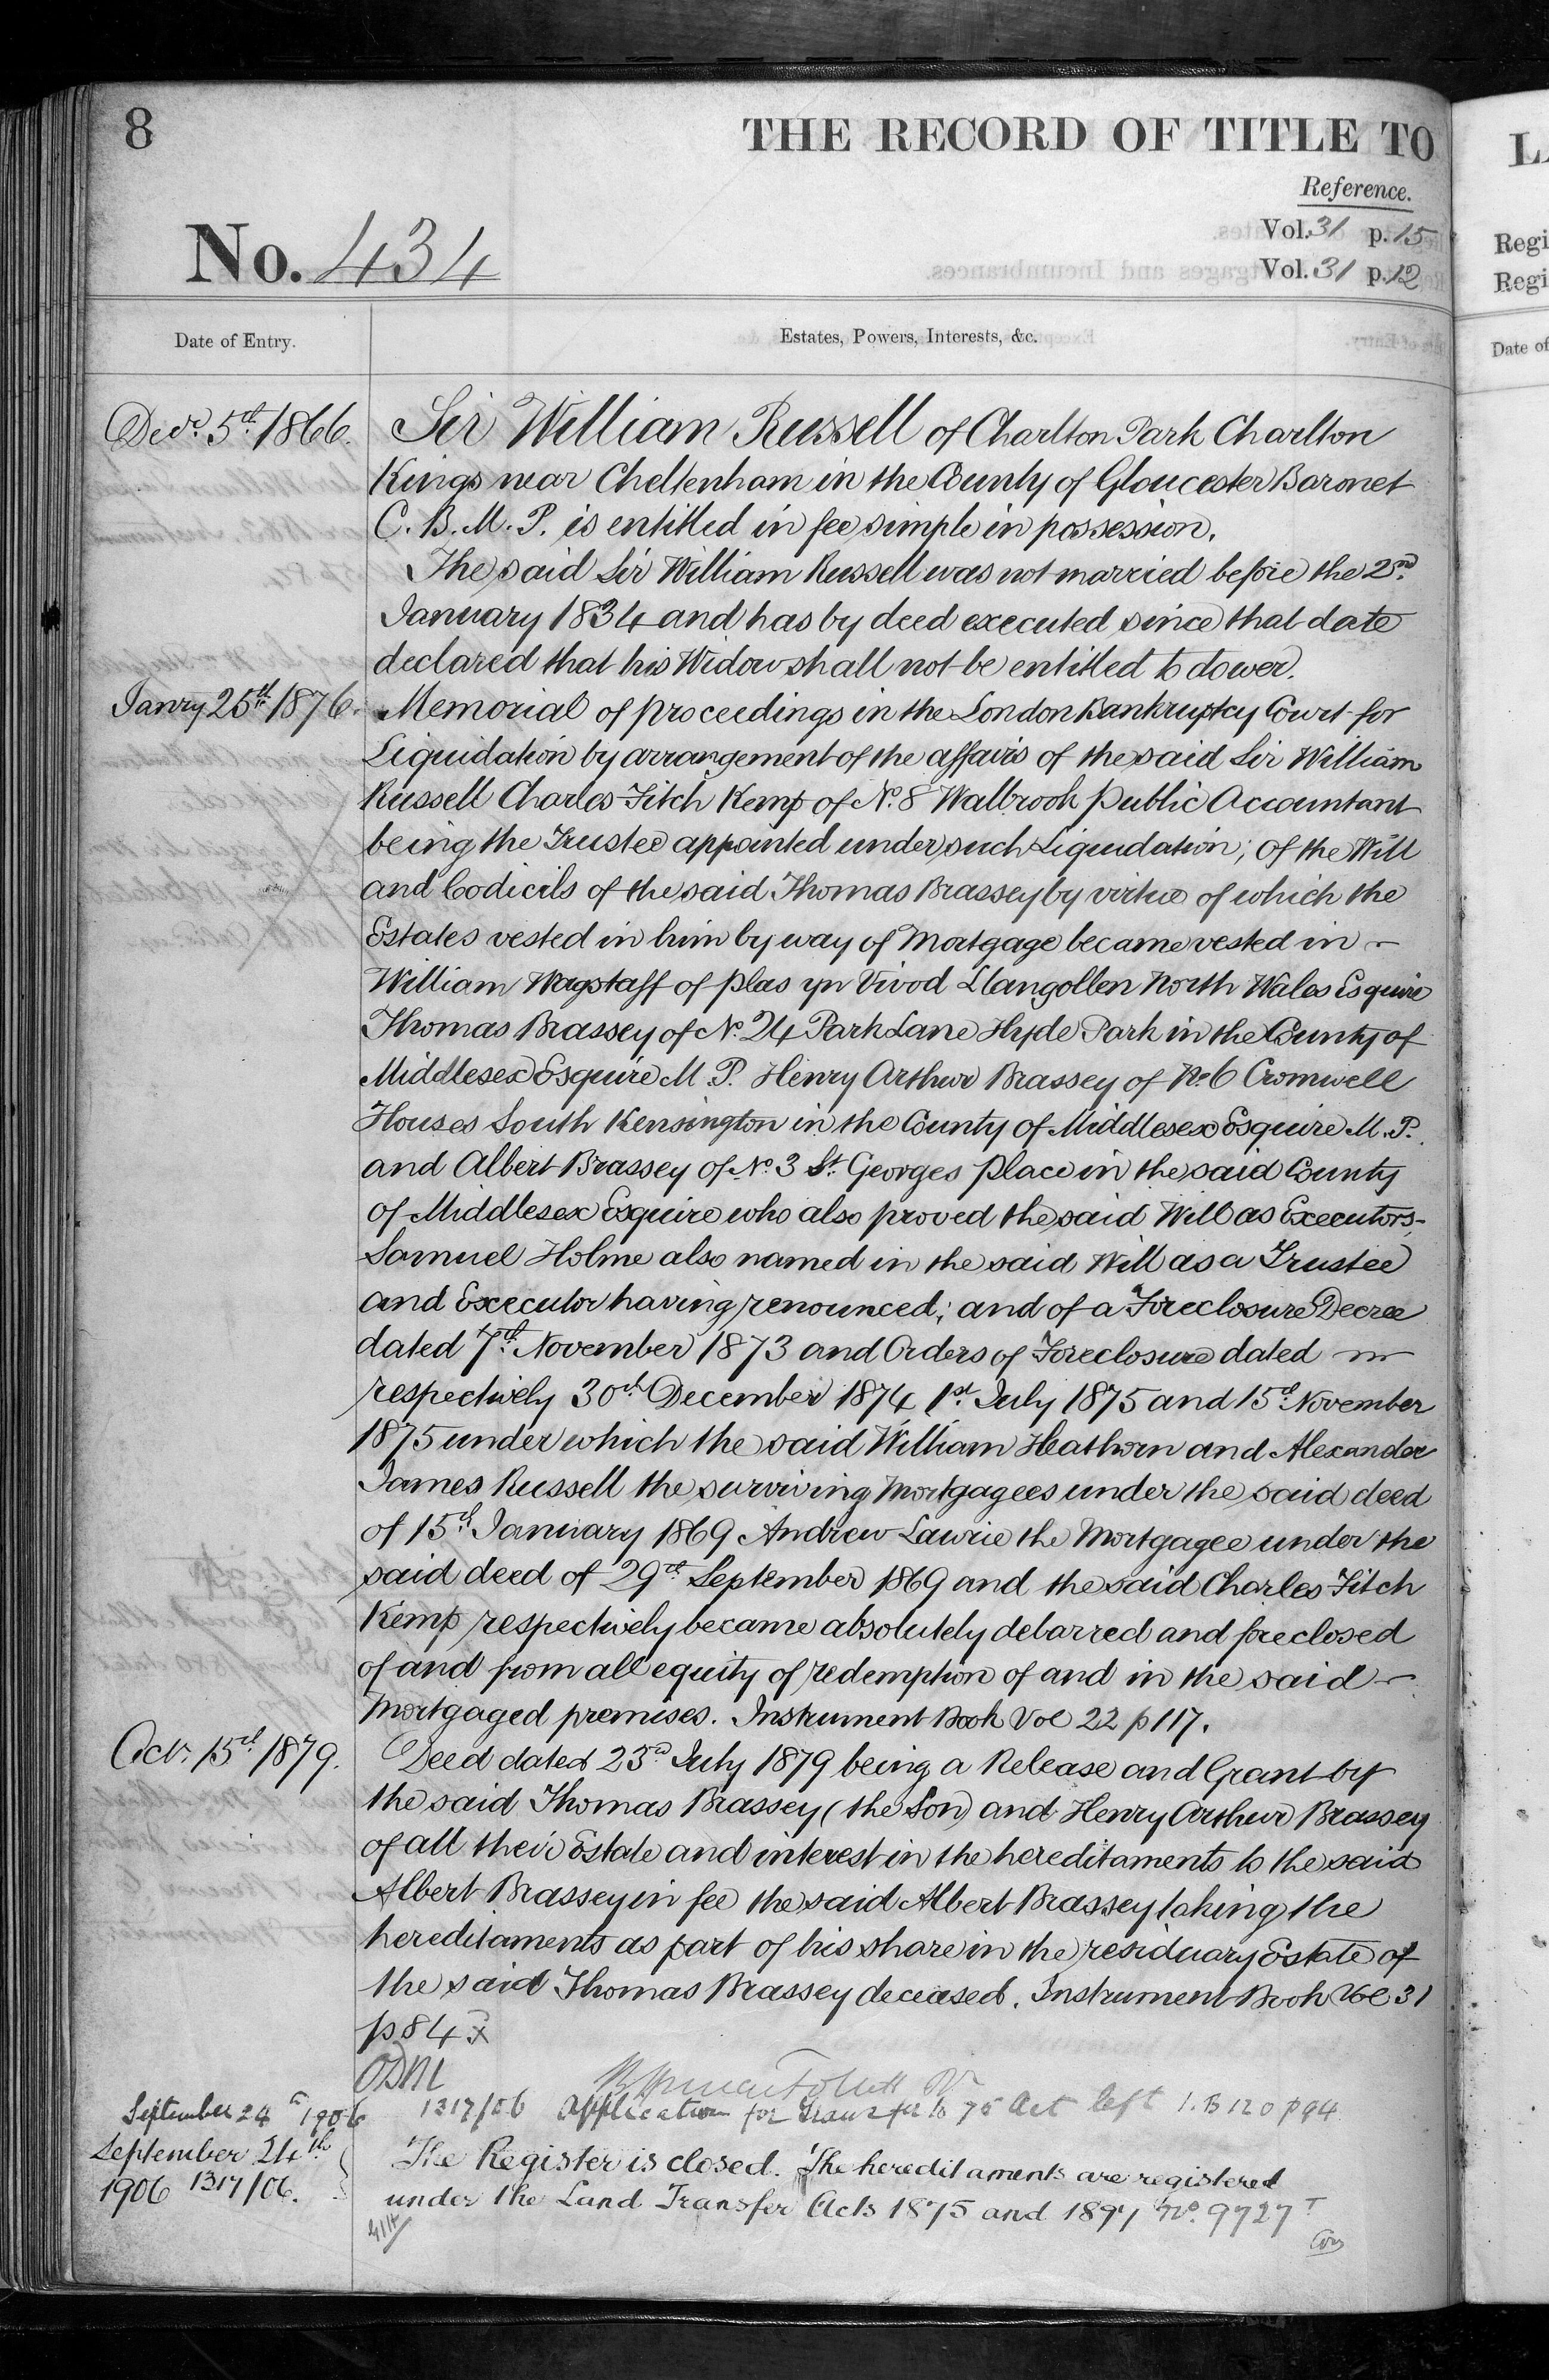 8
THE RECORD OF TITLE TO
Reference.
No. 434
Vol. 31 p. 15
Vol. 31 p. 12
Date of Entry.
Estates, Powers, Interests, &c.
Decr. 5th 1866.
Sir William Russell of Charlton Park Charlton
Kings near Cheltenham in the County of Gloucester Baronet
C. B. M. P. is entitled in fee simple in possession.
The said Sir William Russell was not married before the 2nd.
January 1834 and has by deed executed since that date
declared that his Widow shall not be entitled to dower.
Janry 25th 1876.
Memorial of proceedings in the London Bankruptcy Court for
Liquidation by arrangement of the affairs of the said Sir William
Russell Charles Fitch Kemp of No. 8 Walbrook Public Accountant
being the Trustee appointed under such Liquidation; of the Will
and Codicils of the said Thomas Brassey by virtue of which the
Estates vested in him by way of Mortgage became vested in
William Wagstaff of Plas yn Vivod Llangollen North Wales Esquire
Thomas Brassey of No. 24 Park Lane Hyde Park in the County of
Middlesex Esquire M. P. Henry Arthur Brassey of No. 6 Cromwell
Houses South Kensington in the County of Middlesex Esquire M. P.
and Albert Brassey of No. 3 St. Georges Place in the said County
of Middlesex Esquire who also proved the said Will as Executors
Samuel Holme also named in the said Will as a Trustee
and Executor having renounced; and of a Foreclosure Decree
dated 7th November 1873 and Orders of Foreclosure dated
respectively 30th December 1874 1st July 1875 and 15th November
1875 under which the said William Heathorn and Alexander
James Russell the surviving Mortgagees under the said deed
of 15th January 1869 Andrew Lawrie the Mortgagee under the
said deed of 29th September 1869 and the said Charles Fitch
Kemp respectively became absolutely debarred and foreclosed
of and from all equity of redemption of and in the said
Mortgaged premises. Instrument Book Vol 22 p 117.
Octr. 15th 1879.
Deed dated 23rd July 1879 being a Release and Grant by
the said Thomas Brassey (the Son) and Henry Arthur Brassey
of all their Estate and interest in the hereditaments to the said
Albert Brassey in fee the said Albert Brassey taking the
hereditaments as part of his share in the residuary Estate of
the said Thomas Brassey deceased. Instrument Book Vol 31
p 84
September 24th 1906
1317/06 Application for Transfer to 75 Act left I. B 120 p 94
September 24th
1906 1317/06.
The Register is closed. The hereditaments are registered
under the Land Transfer Acts 1875 and 1897 No. 9727
L
Regi
Regi
Date of